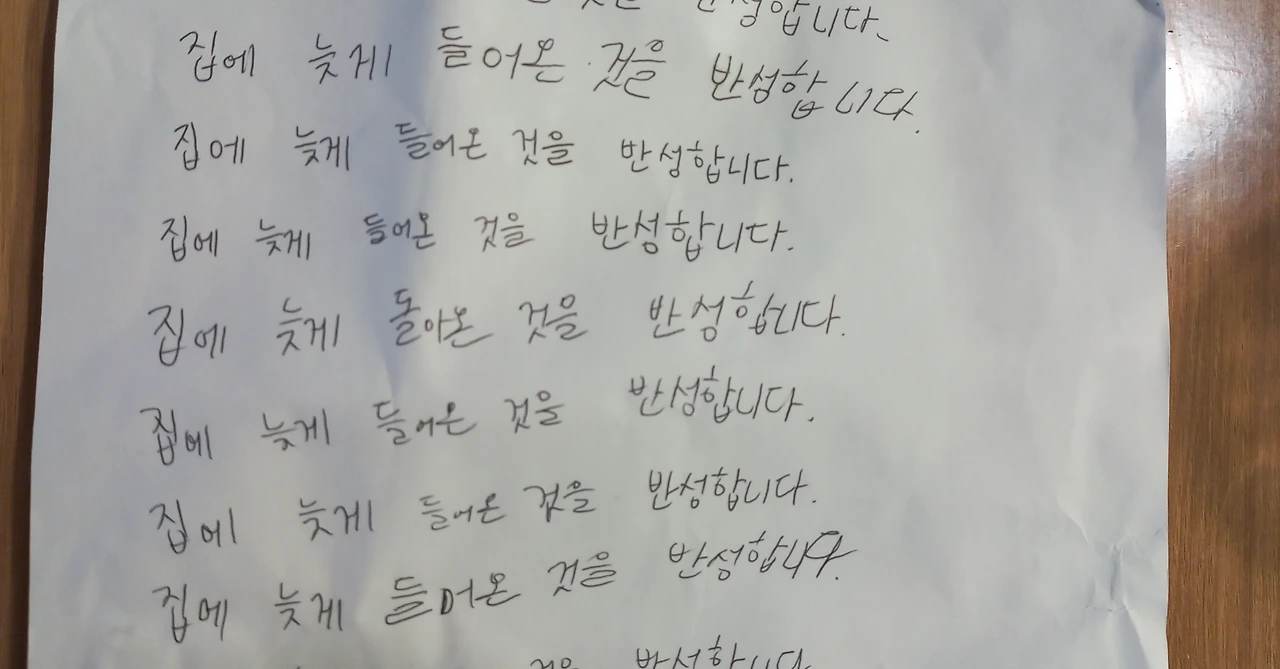 것은 반성합니다.
집에 늦게 들어온 것을 반성합니다.
집에 늦게 들어온 것을 반성합니다.
집에 늦게 들어온 것을 반성합니다.
집에 늦게 돌아온 것을 반성합니다.
집에 늦게 들어온 것을 반성합니다.
집에 늦게 들어온 겂을 반성합니다.
집에 늦게 들어온 것을 반성합니다.
것을 반성합니다